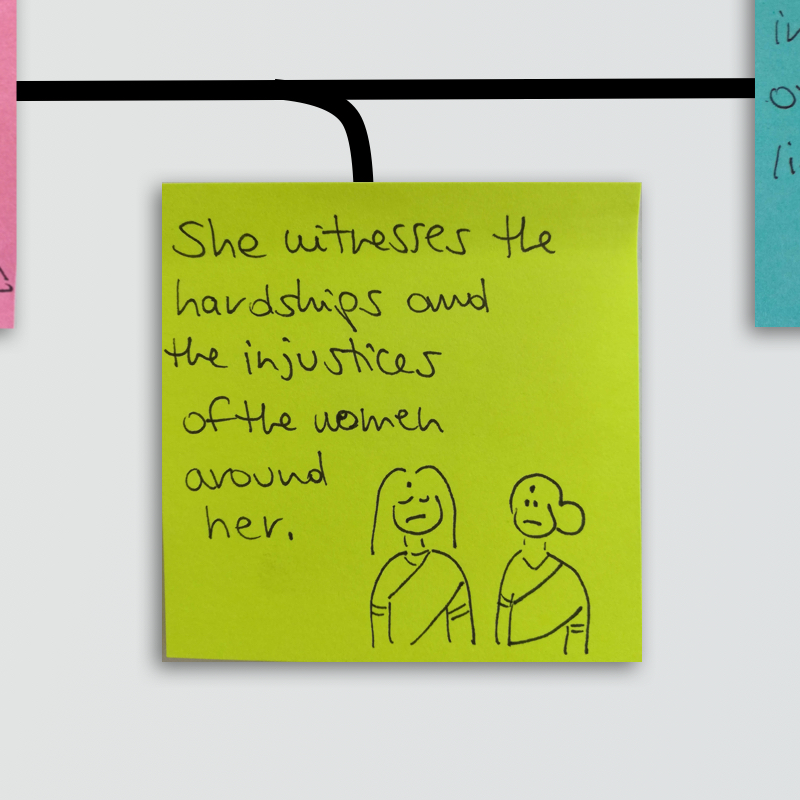 She witnesses the
hardships and
the injustices
of the women
around
her.